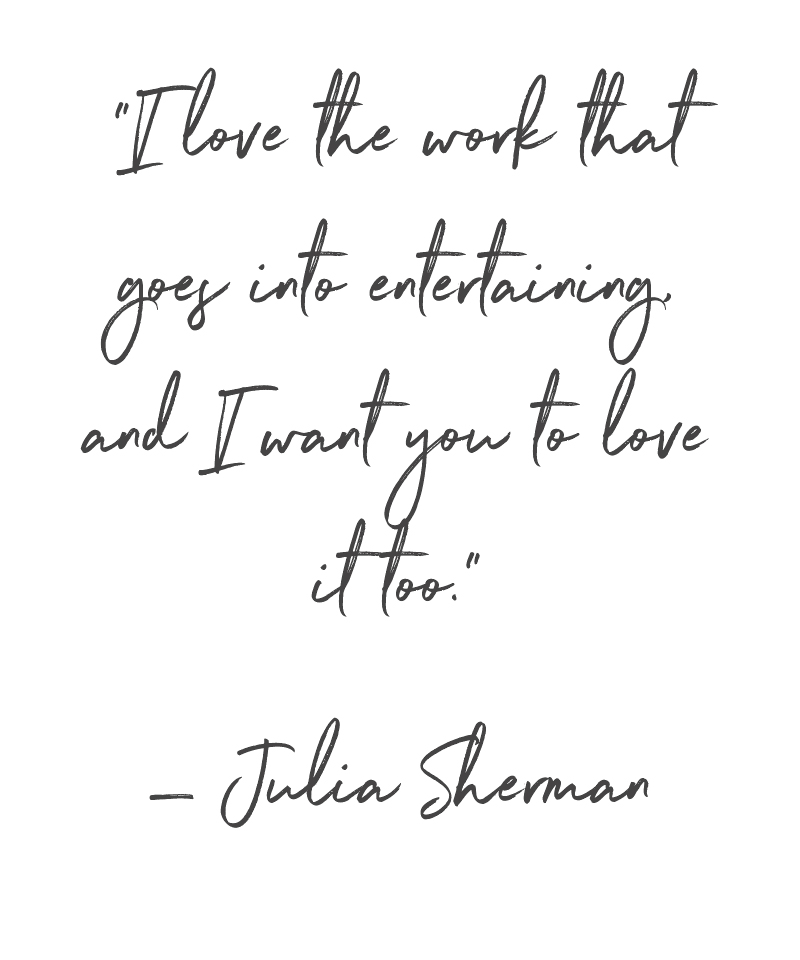 "I love the work that
goes into entertaining,
and I want you to love
it too."
— Julia Sherman